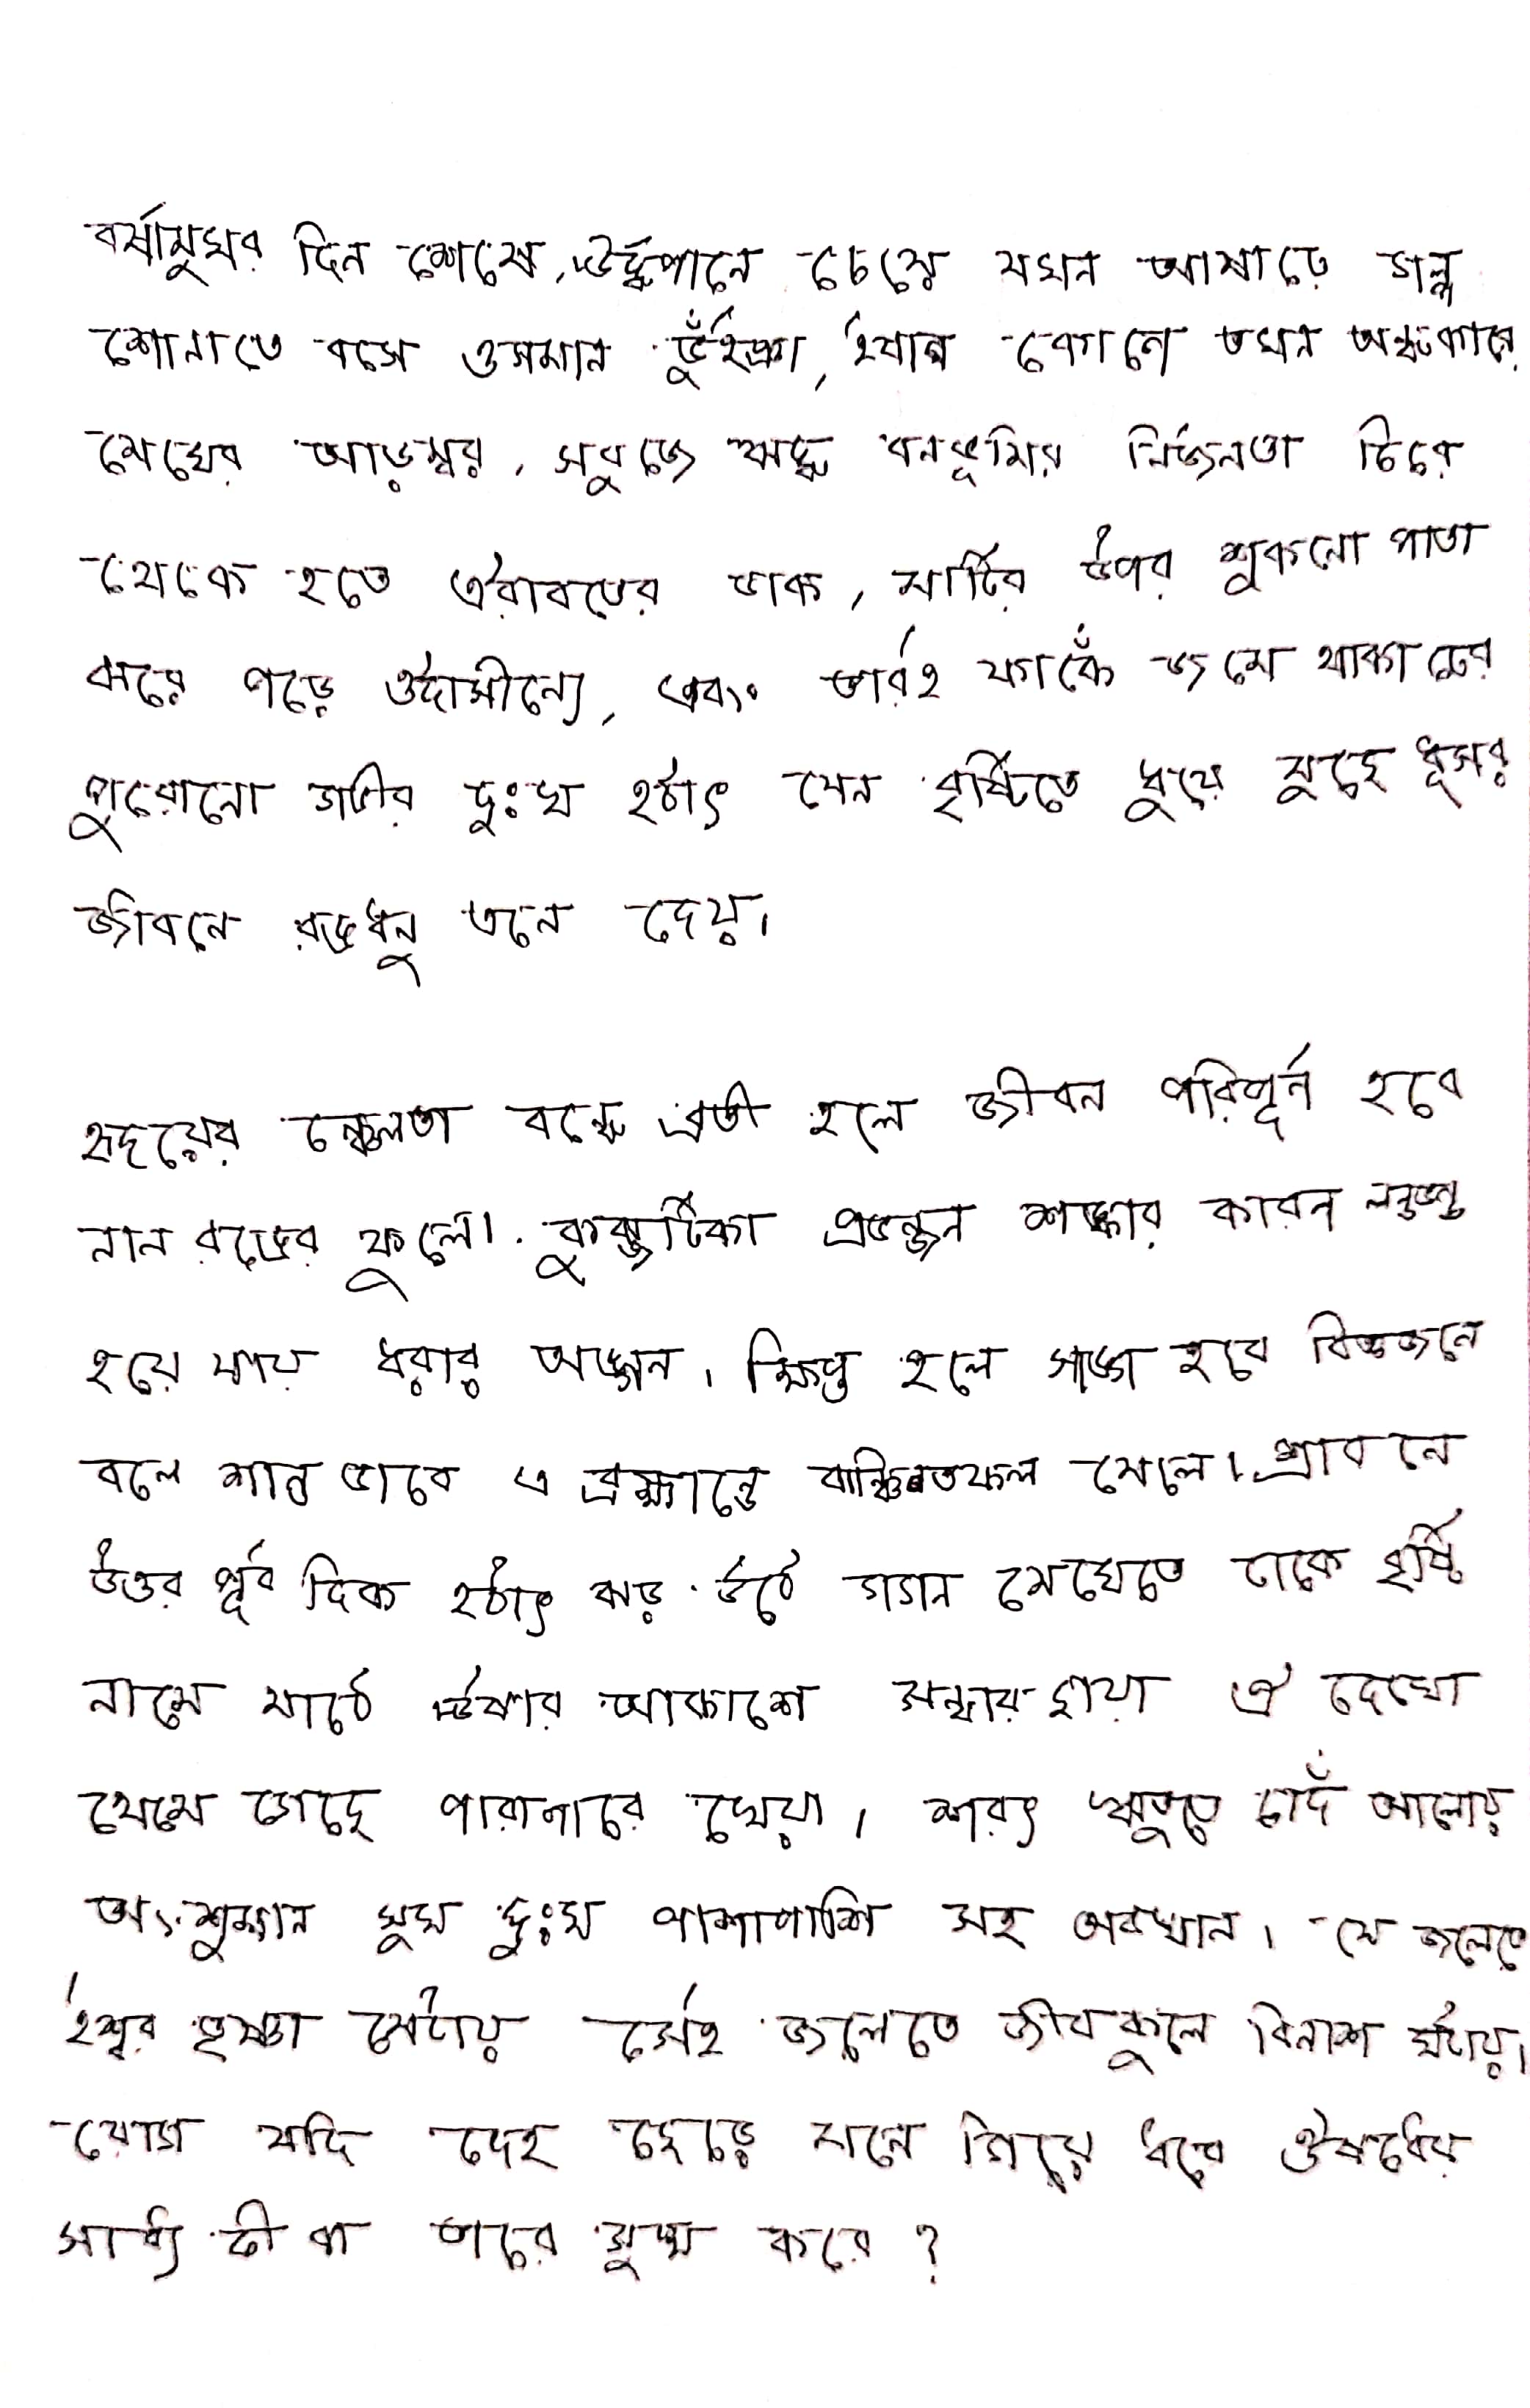 বর্ষামুখর দিন শেষে, ঊর্দ্ধপানে চেয়ে যখন আষাঢ়ে গল্প
শোনাতে বসে ওসমান ভুঁইঞা, ঈষান কোণে তখন অন্ধকারে
মেঘের আড়ম্বর, সবুজে ঋদ্ধ বনভূমির নির্জনতা চিরে
থেকে হতে ঐরাবতের ডাক, মাটির উপর শুকনো পাতা
ঝরে পড়ে ঔদাসীন্যে, এবং তারই ফাকেঁ জমে থাকা ঢের
পুরোনো গভীর দুঃখ হঠাৎ যেন বৃষ্টিতে ধুয়ে মুছে ধূসর
জীবনে রঙধনু এনে দেয়।
হৃদয়ের চঞ্চলতা বন্ধে ব্রতী হলে জীবন পরিপূর্ন হবে
নান রঙের ফুলে। কুঞ্ঝটিকা প্রভঞ্জন শঙ্কার কারন লন্ডভন্ড
হয়ে যায় ধরার অঙ্গন। ক্ষিপ্ত হলে সাঙ্গ হবে বিজ্ঞজনে
বলে শান্ত ভাবে এ ব্রহ্মান্ডে বাঞ্ছিতফল মেলে। শ্রাবনে
উত্তর পূর্ব দিক হঠাৎ ঝড় উঠে গগন মেঘেতে ঢাকে বৃষ্টি
নামে মাঠে ঊষার আকাশে সন্ধার ছায়া ঐ দেখো
থেমে গেছে পারাপারে খেয়া। শরৎ ঋতুতে চাদঁ আলোয়
অংশুমান সুখ দুঃখ পাশাপাশি সহ অবস্থান। যে জলেতে
ঈশ্বর তৃষ্ণা মেটায় সেই জলেতে জীবকুলে বিনাশ ঘটায়।
রোগ যদি দেহ ছেড়ে মনে গিয়ে ধরে ঔষধের
সাধ্য কী বা তারে সুস্থ করে ?